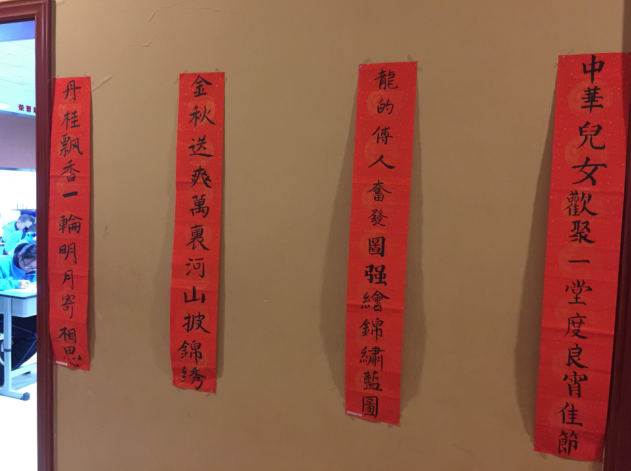 中華兒女歡聚一堂度良宵佳節
龍的傳人奮發圖强繪錦繡藍圖
金秋送爽萬裏河山披錦綉
丹桂飄香一輪明月寄相思